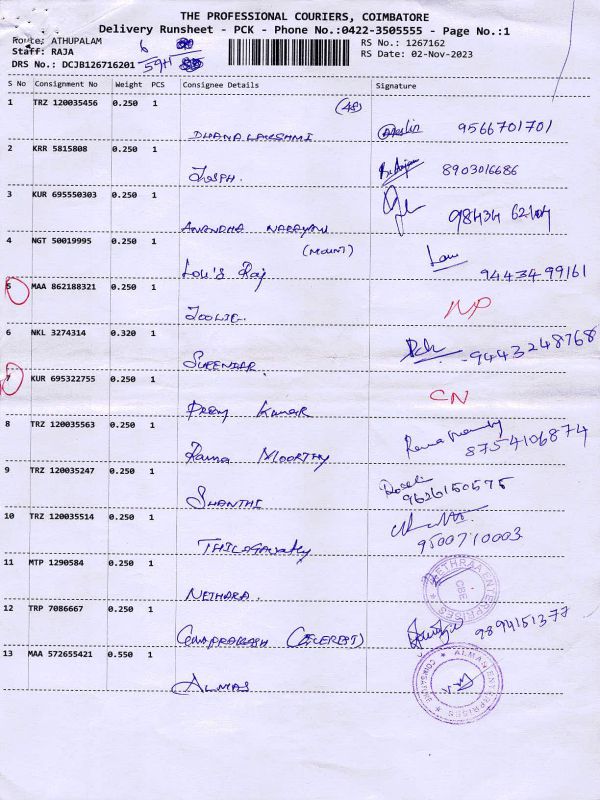 THE PROFESSIONAL COURIERS, COIMBATORE
Delivery Runsheet - PCK - Phone No.:0422-3505555 - Page No.:1
Route: ATHUPALAM
Staff: RAJA
DRS No.: DCJB126716201
6
594
RS No.: 1267162
RS Date: 02-Nov-2023
S No Consignment No Weight PCS Consignee Details Signature
1 TRZ 120035456 0.250 1 (48)
DHANALAKSHMI 9566701701
2 KRR 5815808 0.250 1
JOSPH. 8903016686
3 KUR 695550303 0.250 1
ANANDHA NARAYAN 98434
4 NGT 50019995 0.250 1 (MOUNT)
Lou's Raj 9443499161
5 MAA 862188321 0.250 1 NP
6 NKL 3274314 0.320 1
SURENDAR. 9443248768
7 KUR 695322755 0.250 1 CN
Prem Kumar
8 TRZ 120035563 0.250 1
Rama MOORTHY 8754106874
9 TRZ 120035247 0.250 1
SHANTHI 9626150575
10 TRZ 120035514 0.250 1
THILAGAVATHY 9500710003
11 MTP 1290584 0.250 1
NETHRA. NETHRAA ENTERPRISES CBE
12 TRP 7086667 0.250 1
9894151377
13 MAA 572655421 0.550 1
ALMAS ENTERPRISES